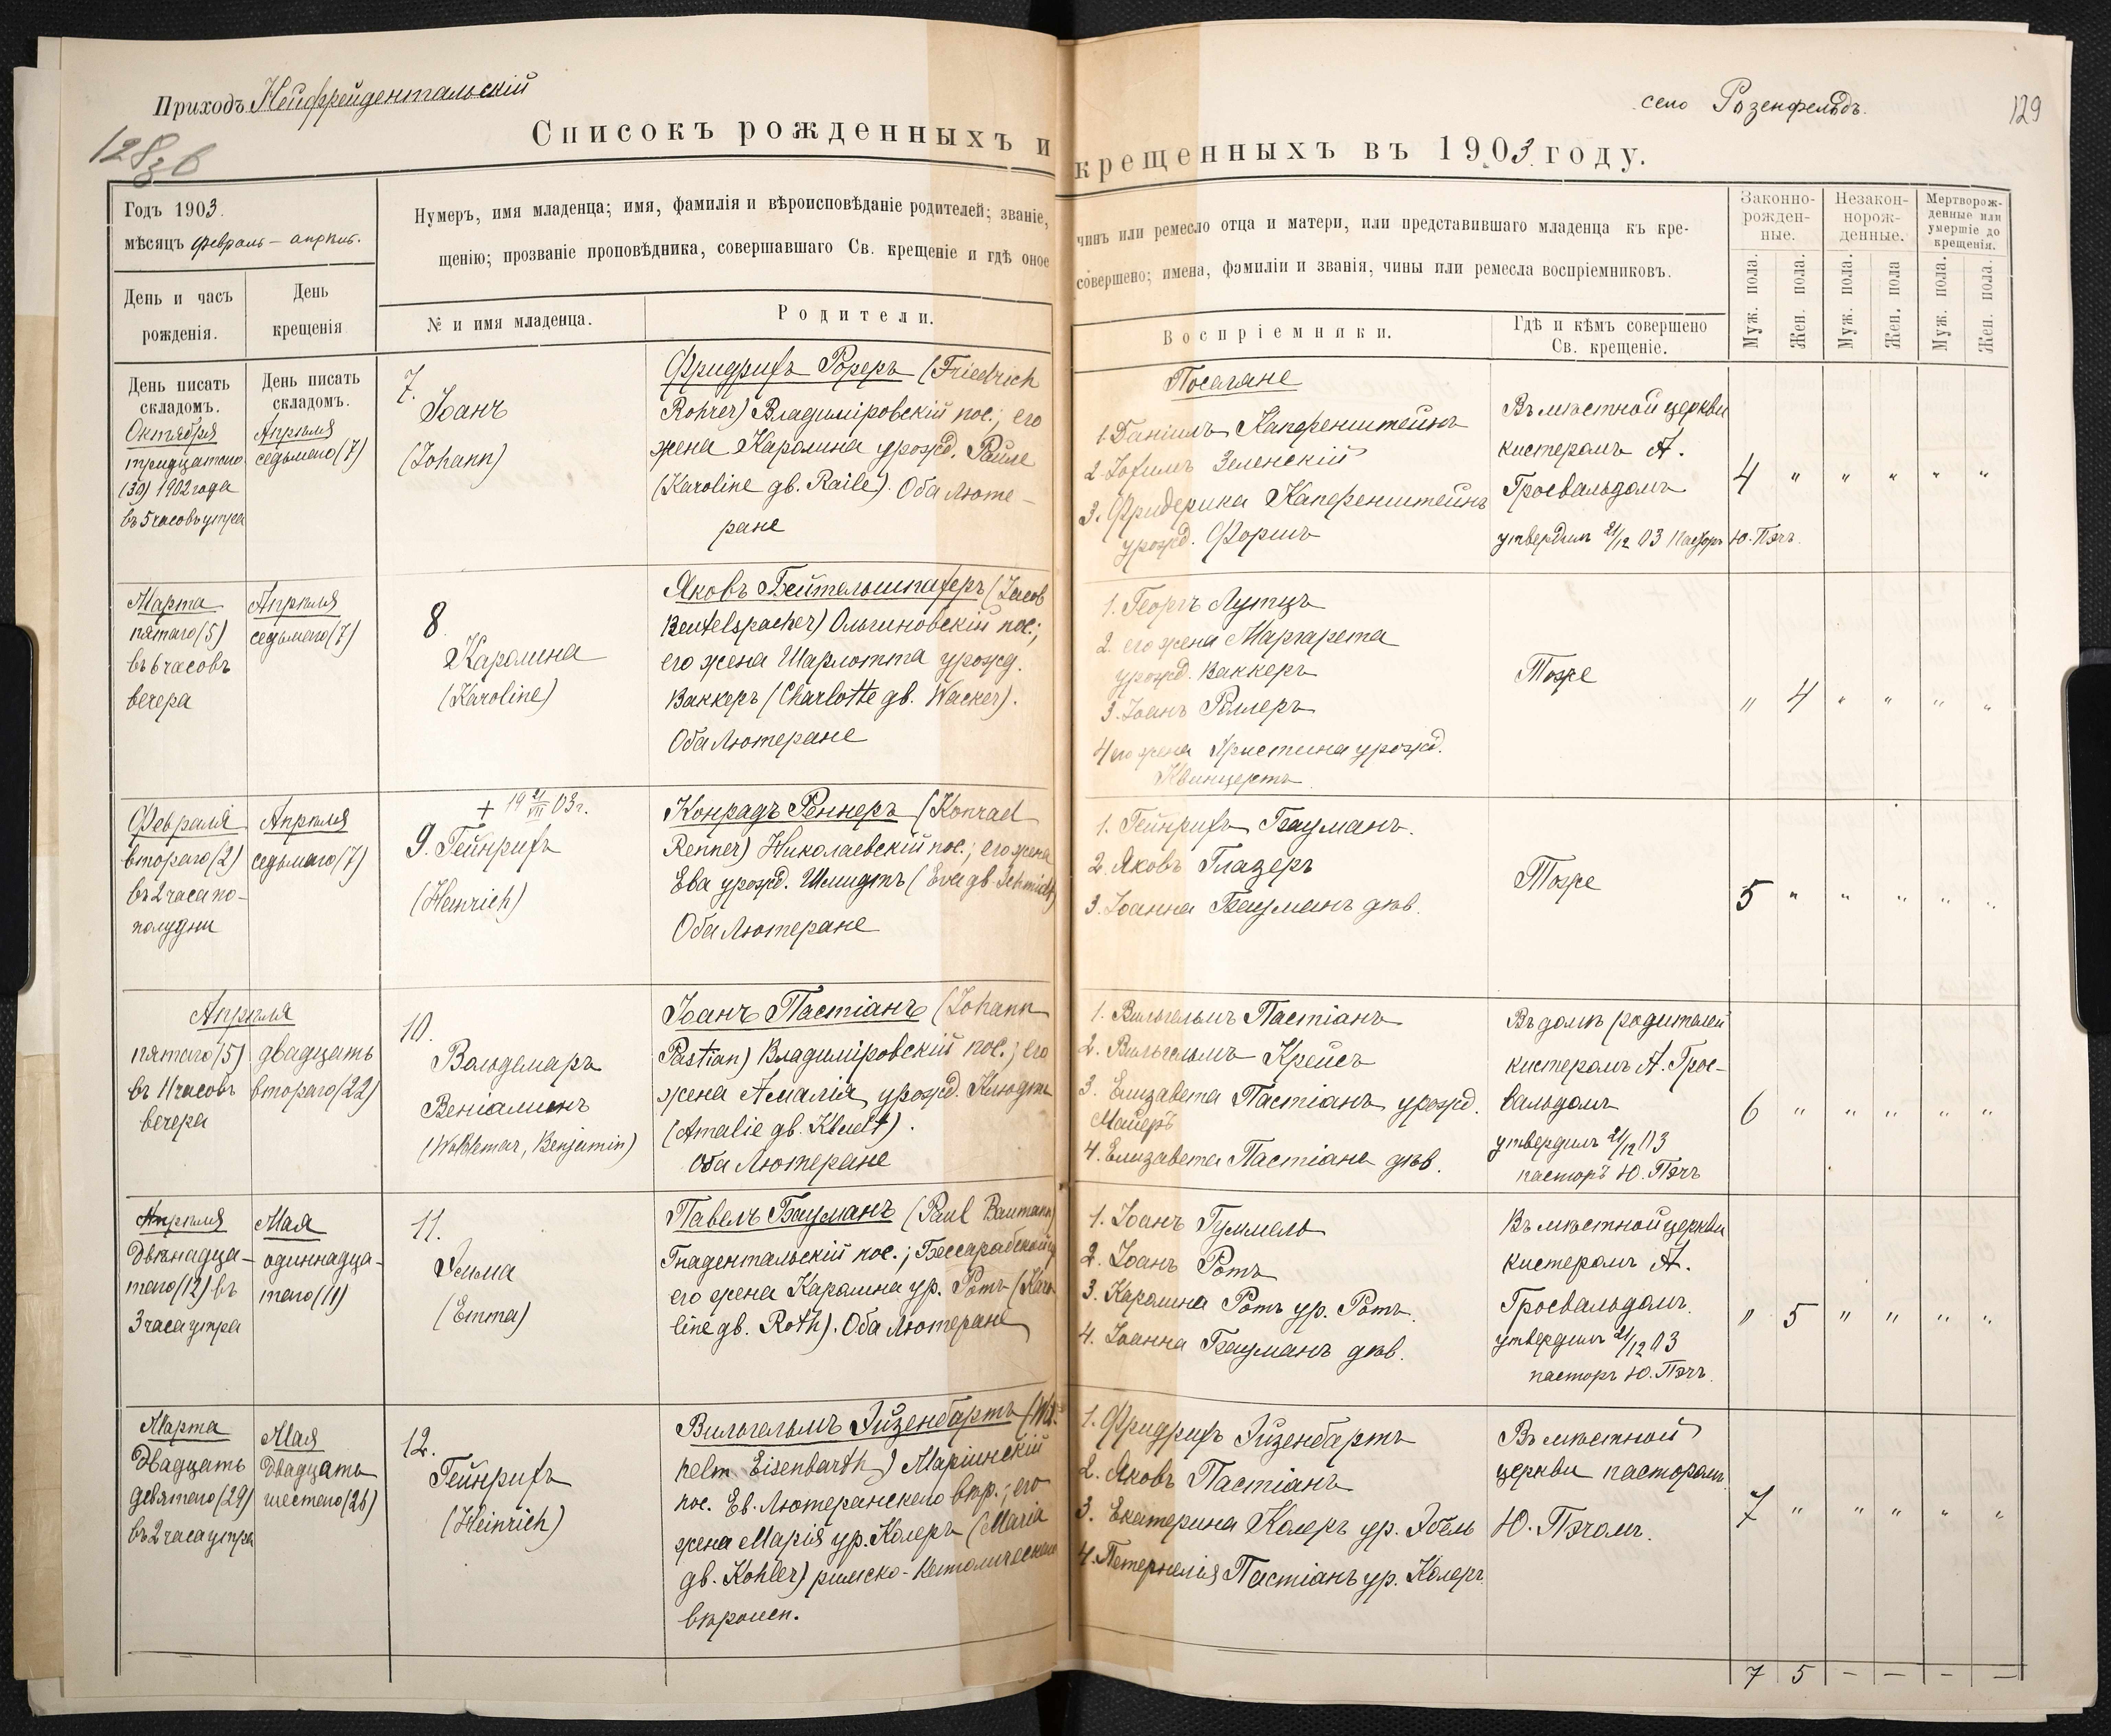 Приходъ Нейфрейдентальскій
село Розенфельдъ.
129
128
Списокъ рожденныхъ и крещенныхъ въ 1903 году.
Годъ 1903.
мѣсяцъ февраль — апрѣль.
Нумеръ, имя младенца; имя, фамилія и вѣроисповѣданіе родителей; званіе, чинъ или ремесло отца и матери, или представившаго младенца къ кре-
щенію; прозваніе проповѣдника, совершавшаго Св. крещеніе и гдѣ оное совершено; имена, фамиліи и званія, чины или ремесла воспріемниковъ.
Законно-
рожден-
ные.
Незакон-
норож-
денные.
Мертворож-
денные или
умершіе до
крещенія.
День и часъ
рожденія.
День
крещенія
№ и имя младенца.
Родители.
Воспріемники.
Гдѣ и кѣмъ совершено
Св. крещеніе.
Муж. пола.
Жен. пола.
Муж. пола.
Жен. пола
Муж. пола.
Жен. пола.
День писать
складомъ.
Октября
тридцатаго
(30) 1902 года
въ 5 часовъ утра
День писать
складомъ.
Апрѣля
седьмого (7)
7.
Іоанъ
(Johann)
Фридрихъ Рореръ (Friedrich
Rohrer) Владиміровскій пос.; его
жена Каролина урожд. Райле
(Karoline gb. Raile). Оба Люте-
ране
Поселяне
1. Даніилъ Капфенштейнъ
2. Іохимъ Зеленскій
3. Фридерика Капфенштейнъ
урожд. Форшъ
Въ мѣстной церкви
кистеромъ А.
Гросвальдомъ
утвердилъ 21/12 03 Пасторъ Ю. Пэчъ.
4 " " " " "
Марта
пятаго (5)
въ 6 часовъ
вечера
Апрѣля
седьмого (7)
8
Каролина
(Karoline)
Яковъ Бейтельшпахеръ (Jacob
Beutelspacher) Ольгиновскій пос.;
его жена Шарлотта урожд.
Ваккеръ (Charlotte gb. Wacker).
Оба Лютеране
1. Георгъ Лутцъ
2. его жена Маргарета
урожд. Ваккеръ
3. Іоанъ Роллеръ
4 его жена Христина урожд.
Тоже
" 4 " " " "
Февраля
второго (2)
въ 2 часа по-
полудни
Апрѣля
седьмого (7)
+ 19 21/VII 03 г.
9. Гейнрихъ
(Heinrich)
Конрадъ Реннеръ (Konrad
Renner) Николаевскій пос.; его жена
Ева урожд. Шмидтъ (Eva gb. Schmidt)
Оба Лютеране
1. Гейнрихъ Бауманъ.
2. Яковъ Глазеръ
3. Іоанна Бауманъ дѣв.
Тоже
5 " " " " "
Апрѣля
пятаго (5)
въ 11 часовъ
вечера
двадцать
второго (22)
10.
Вольдемаръ
Веніаминъ
(Woldemar, Benjamin)
Іоанъ Пастіанъ (Johann
Pastian) Владиміровскій пос.; его
жена Амалія урожд. Клюдтъ
(Amalie gb. Kludt).
Оба Лютеране
1. Вильгельмъ Пастіанъ
2. Вильгельмъ Крейсъ
3. Елизавета Пастіанъ урожд.
Майеръ
4. Елизавета Пастіанъ дѣв.
Въ домѣ родителей
кистеромъ А. Грос-
вальдомъ
утвердилъ 21/12 03
пасторъ Ю. Пэчъ
6 " " " " "
Апрѣля
Двѣнадца-
таго (12) въ
3 часа утра
Мая
одиннадца-
таго (11)
11.
Эмма
(Emma)
Павелъ Бауманъ (Paul Baumann)
Гнадентальскій пос.; Бессарабской г.
его жена Каролина ур. Ротъ (Karo-
line gb. Roth). Оба Лютеране
1. Іоанъ Гуммель
2. Іоанъ Ротъ
3. Каролина Ротъ ур. Ротъ.
4. Іоанна Бауманъ дѣв.
Въ мѣстной церкви
кистеромъ А.
Гросвальдомъ.
утвердилъ 21/12 03
пасторъ Ю. Пэчъ.
" 5 " " " "
Марта
Двадцать
девятаго (29)
въ 2 часа утра
Мая
Двадцать
шестого (26)
12.
Гейнрихъ
(Heinrich)
Вильгельмъ Эйзенбартъ (Wil-
helm Eisenbarth) Маріинскій
пос. Ев. Лютеранскаго вѣр.; его
жена Марія ур. Колеръ (Maria
gb. Kohler) римско-католическаго
вѣроисп.
1. Фридрихъ Эйзенбартъ
2. Яковъ Пастіанъ
3. Екатерина Колеръ ур. Эбель
4. Петернелія Пастіанъ ур. Колеръ
Въ мѣстной
церкви пасторомъ
Ю. Пэчомъ.
7 " " " " "
7 5 — — — —